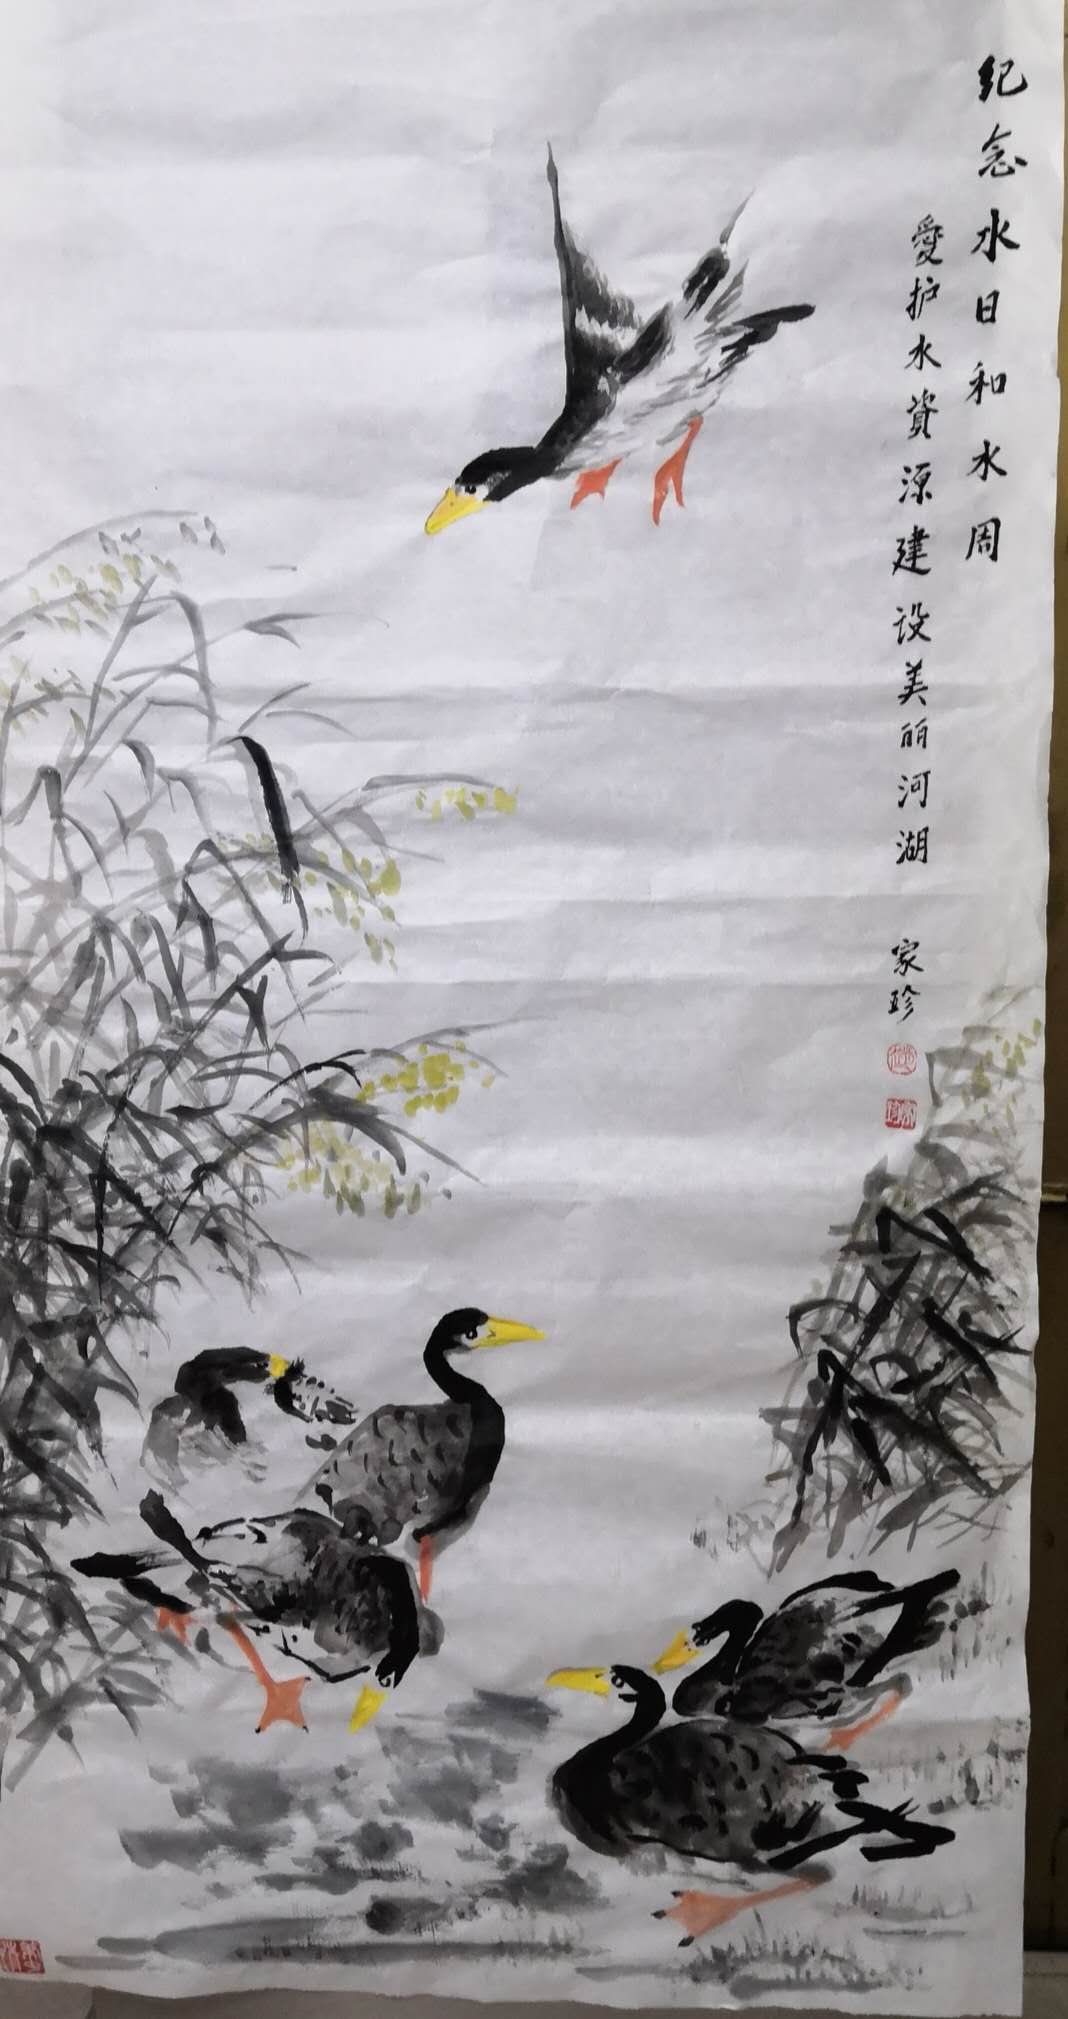 纪念水日和水周
愛护水資源建设美丽河湖
家珍
家珍